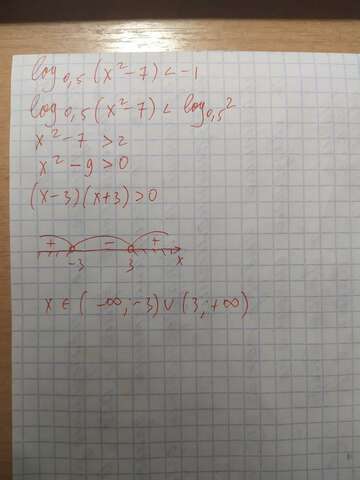 log₀,₅(x²-7) < -1
log₀,₅(x²-7) < log₀,₅2
x²-7 > 2
x²-9 > 0
(x-3)(x+3) > 0
+ - +
-3 3 x
x ∈ (-∞; -3) ∪ (3; +∞)